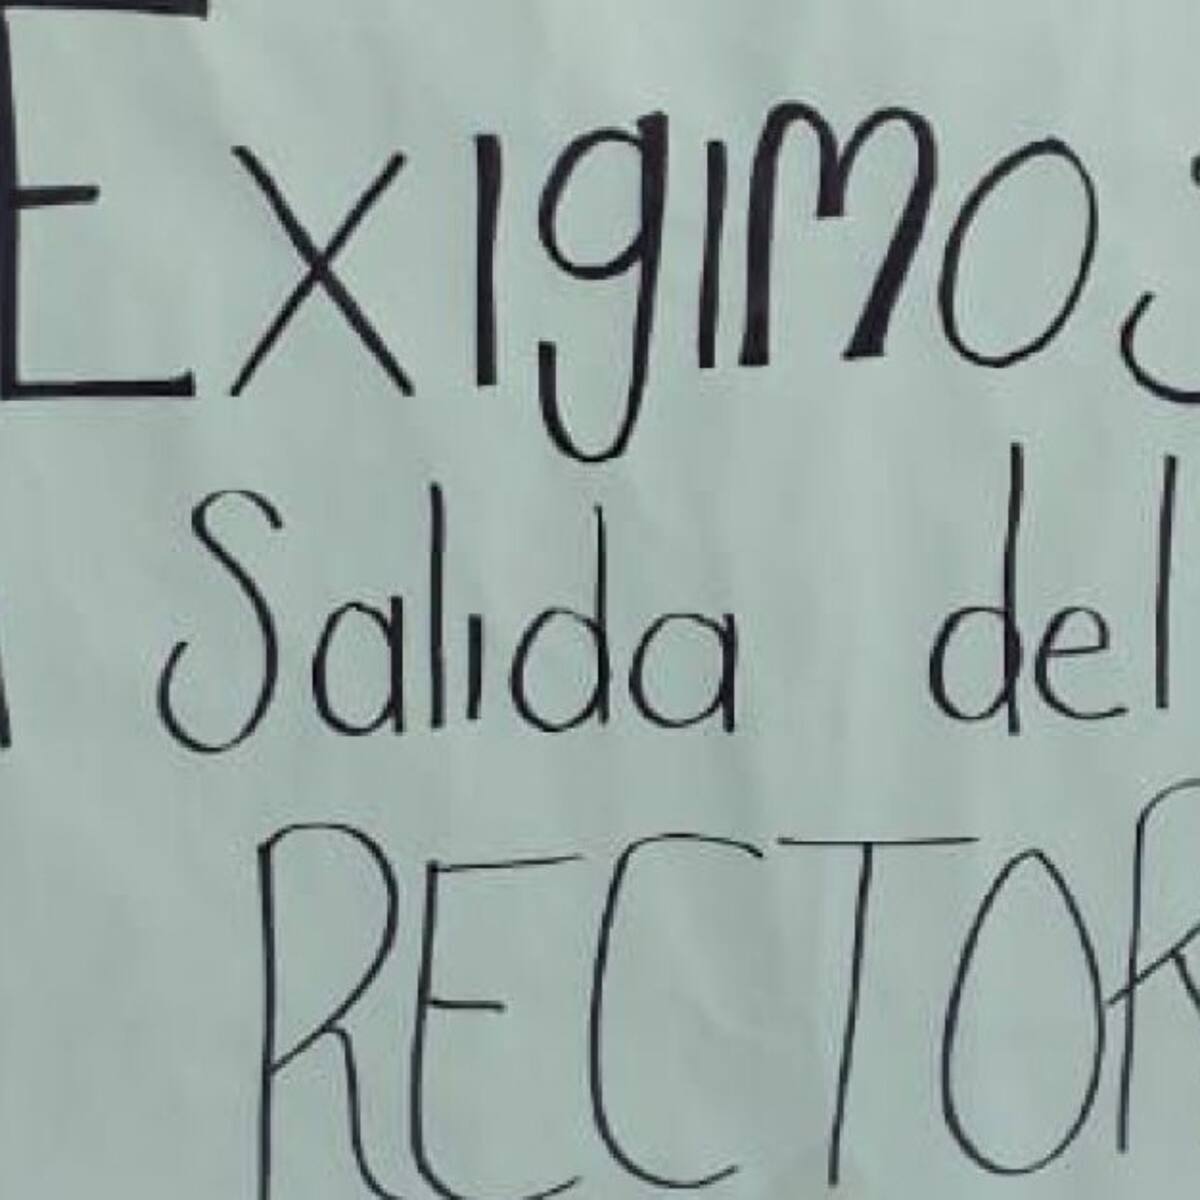 Exigimos
Salida del
RECTOR